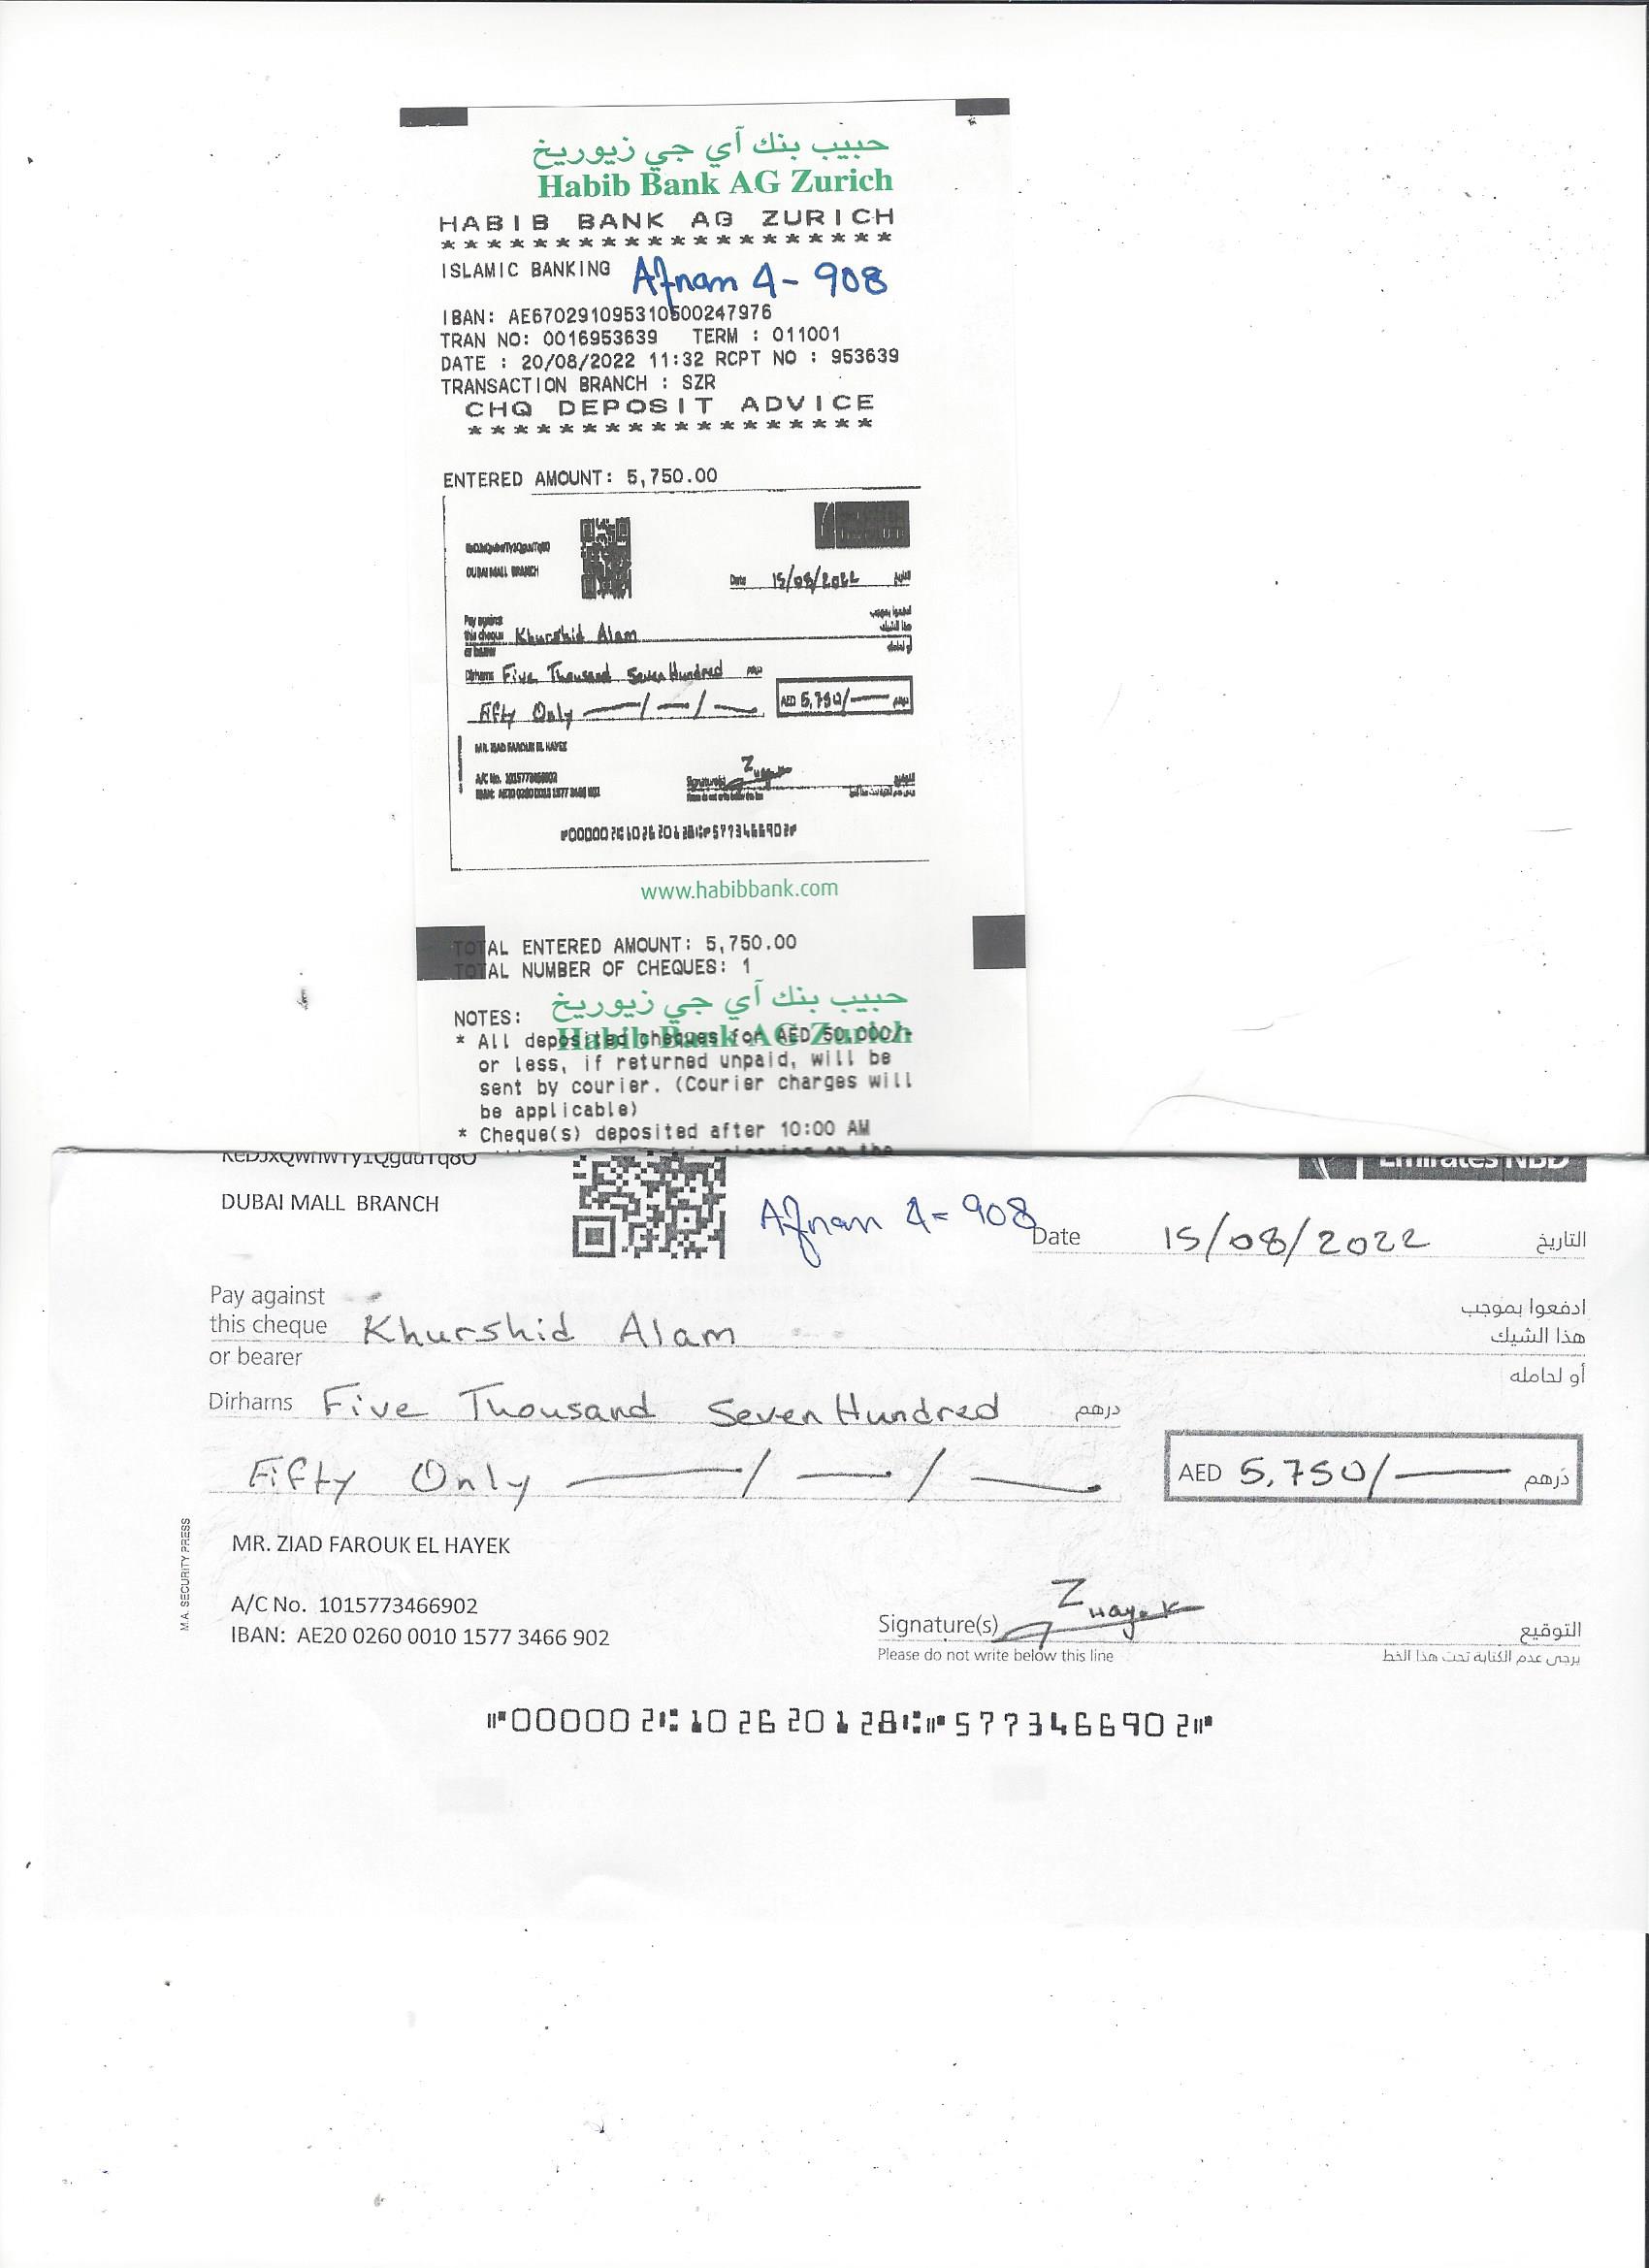 حبيب بنك آي جي زيوريخ
Habib Bank AG Zurich
HABIB BANK AG ZURICH
*******************
ISLAMIC BANKING Afnan 4- 908
IBAN: AE670291095310500247976
TRAN NO: 0016953639 TERM : 011001
DATE : 20/08/2022 11:32 RCPT NO : 953639
TRANSACTION BRANCH : SZR
CHQ DEPOSIT ADVICE
******************
ENTERED AMOUNT: 5,750.00
DUBAI MALL BRANCH
Date 15/08/2022 التاريخ
Pay against
this cheque Khurshid Alam
or bearer
Dirhams Five Thousand Seven Hundred درهم
Fifty Only AED 5,750/ درهم
MR. ZIAD FAROUK EL HAYEK
A/C No. 1015773466902
IBAN: AE20 0260 0010 1577 3466 902
Signature(s) Z Hayek التوقيع
www.habibbank.com
TOTAL ENTERED AMOUNT: 5,750.00
TOTAL NUMBER OF CHEQUES: 1
حبيب بنك آي جي زيوريخ
NOTES:
Habib Bank AG Zurich
* All deposited cheques for AED 50,000/-
or less, if returned unpaid, will be
sent by courier. (Courier charges will
be applicable)
* Cheque(s) deposited after 10:00 AM
Emirates NBD
DUBAI MALL BRANCH
Afnan 4- 908
Date 15/08/2022 التاريخ
Pay against ادفعوا بموجب
this cheque Khurshid Alam هذا الشيك
or bearer أو لحامله
Dirhams Five Thousand Seven Hundred درهم
Fifty Only / / AED 5,750/ درهم
M.A. SECURITY PRESS
MR. ZIAD FAROUK EL HAYEK
A/C No. 1015773466902
IBAN: AE20 0260 0010 1577 3466 902
Signature(s) Z Hayek التوقيع
Please do not write below this line يرجى عدم الكتابة تحت هذا الخط
⑈000002⑆102620128⑆⑈5773466902⑈